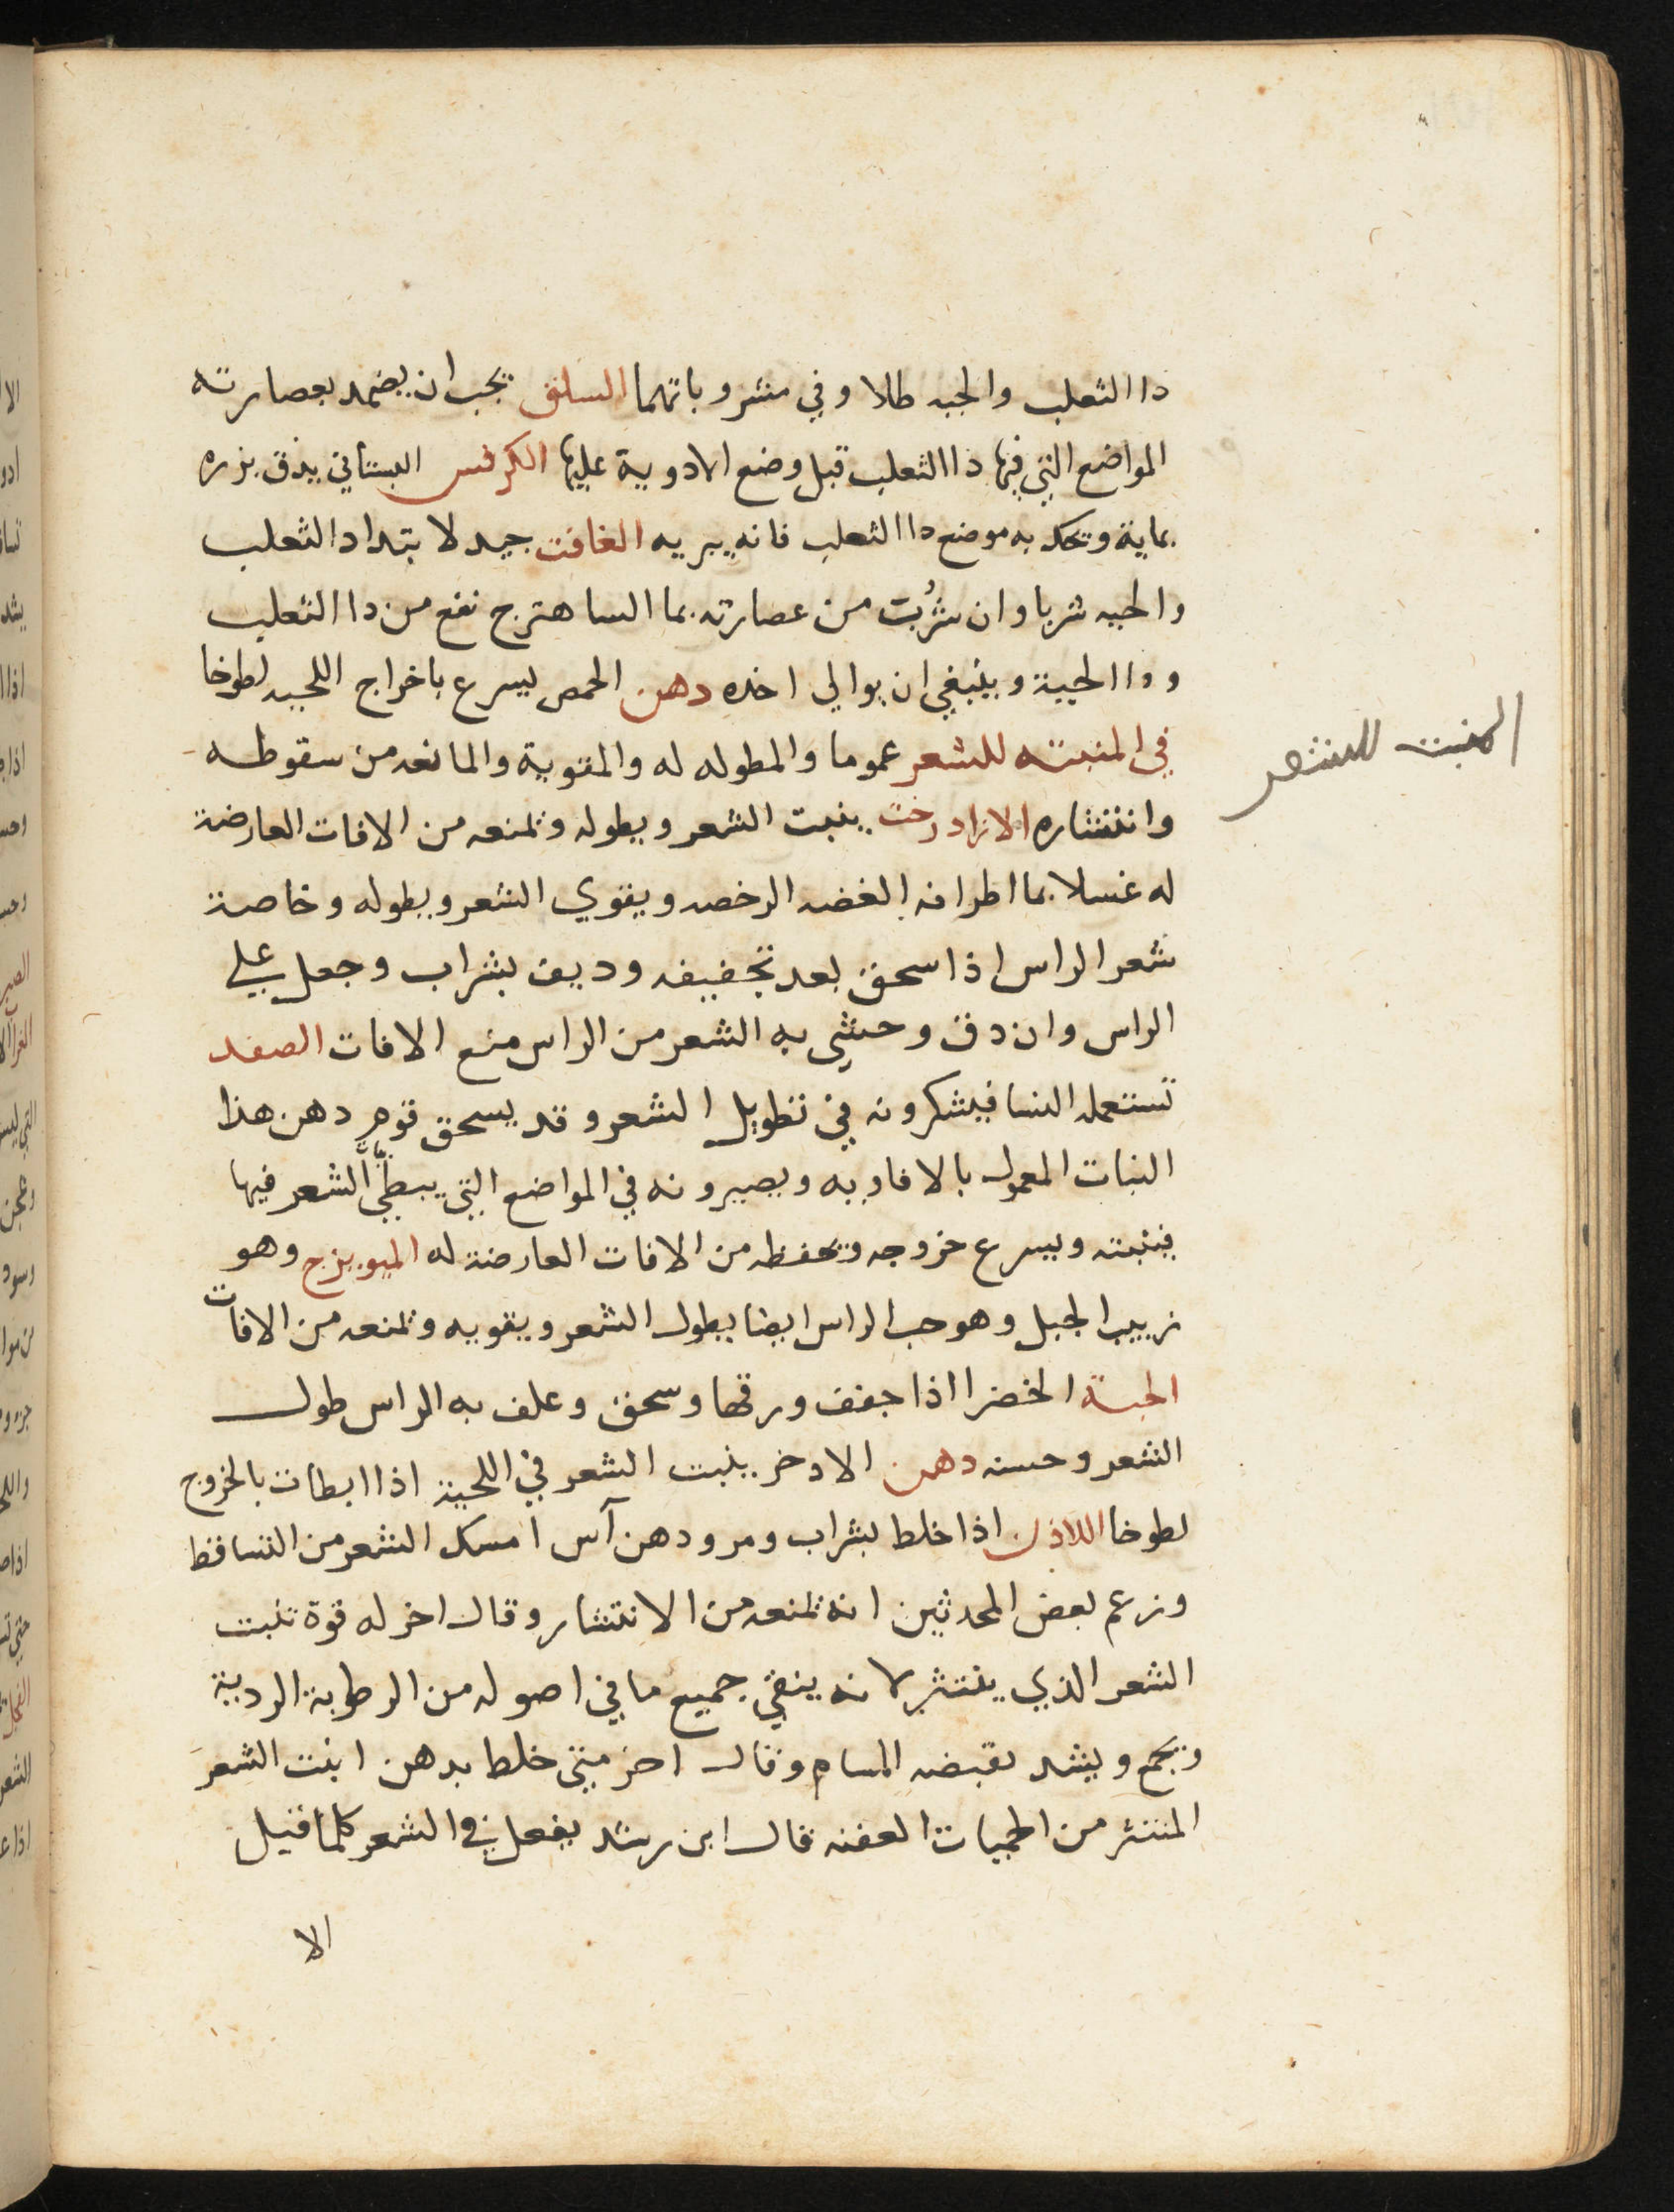 دا الثعلب والحيه طلا وفي مشروباتهما السلق يجب ان يضمد بعصارته
المواضع التي فيها داالثعلب قبل وضع الادوية عليها الكرفس البستاني يدق بزره
بمايه ويحك به موضع داالثعلب فانه يبريه الغافت جيد لابتداد الثعلب
والحيه شربا وان شُربت من عصارته بما الساهترج نفع من دا الثعلب
ودا الحية وينبغي ان يوالي اخذه دهن الحمص يسرع باخراج اللحيه لطوخا
في المنبته للشعر عموما والمطوله له والمقوية والمانعه من سقوطه
المنبت للشعر
وانتشاره الازادرخت ينبت الشعر ويطوله وتمنعه من الافات العارضة
له غسلا بما اطرافه الغضه الرخصه ويقوي الشعر ويطوله وخاصة
شعر الراس اذا سحق بعد تجفيفه وديف بشراب وجعل علي
الراس وان دق وحشي به الشعر من الراس منع الافات الصفد
تستعمله النسا فيشكرونه في تطويل الشعر وقد يسحق قوم دهن هذا
النبات المعمول بالافاويه ويصيرونه في المواضع التي يبطي الشعر فيها
فينبته ويسرع خروجه وتحفظه من الافات العارضة له الميويزج وهو
زبيب الجبل وهو حب الراس ايضا يطول الشعر ويقويه وتمنعه من الافات
الحبة الخضرا اذا جفف ورقها وسحق وعلف به الراس طول
الشعر وحسنه دهن الادخر ينبت الشعر في اللحية اذا ابطات بالخروج
لطوخا اللاذن اذا خلط بشراب ومر ودهن آس امسك الشعر من التساقط
وزعم بعض المحدثين انه تمنعه من الانتشار وقال اخر له قوة تنبت
الشعر الذي ينتثر لانه ينقي جميع ما في اصوله من الرطوبة الردية
ويجمع ويشد بقبضه المسام وقال اخر متي خلط بدهن انبت الشعر
المنتثر من الحميات العفنه قال ابن رشد يفعل في الشعر كلما قيل
الا